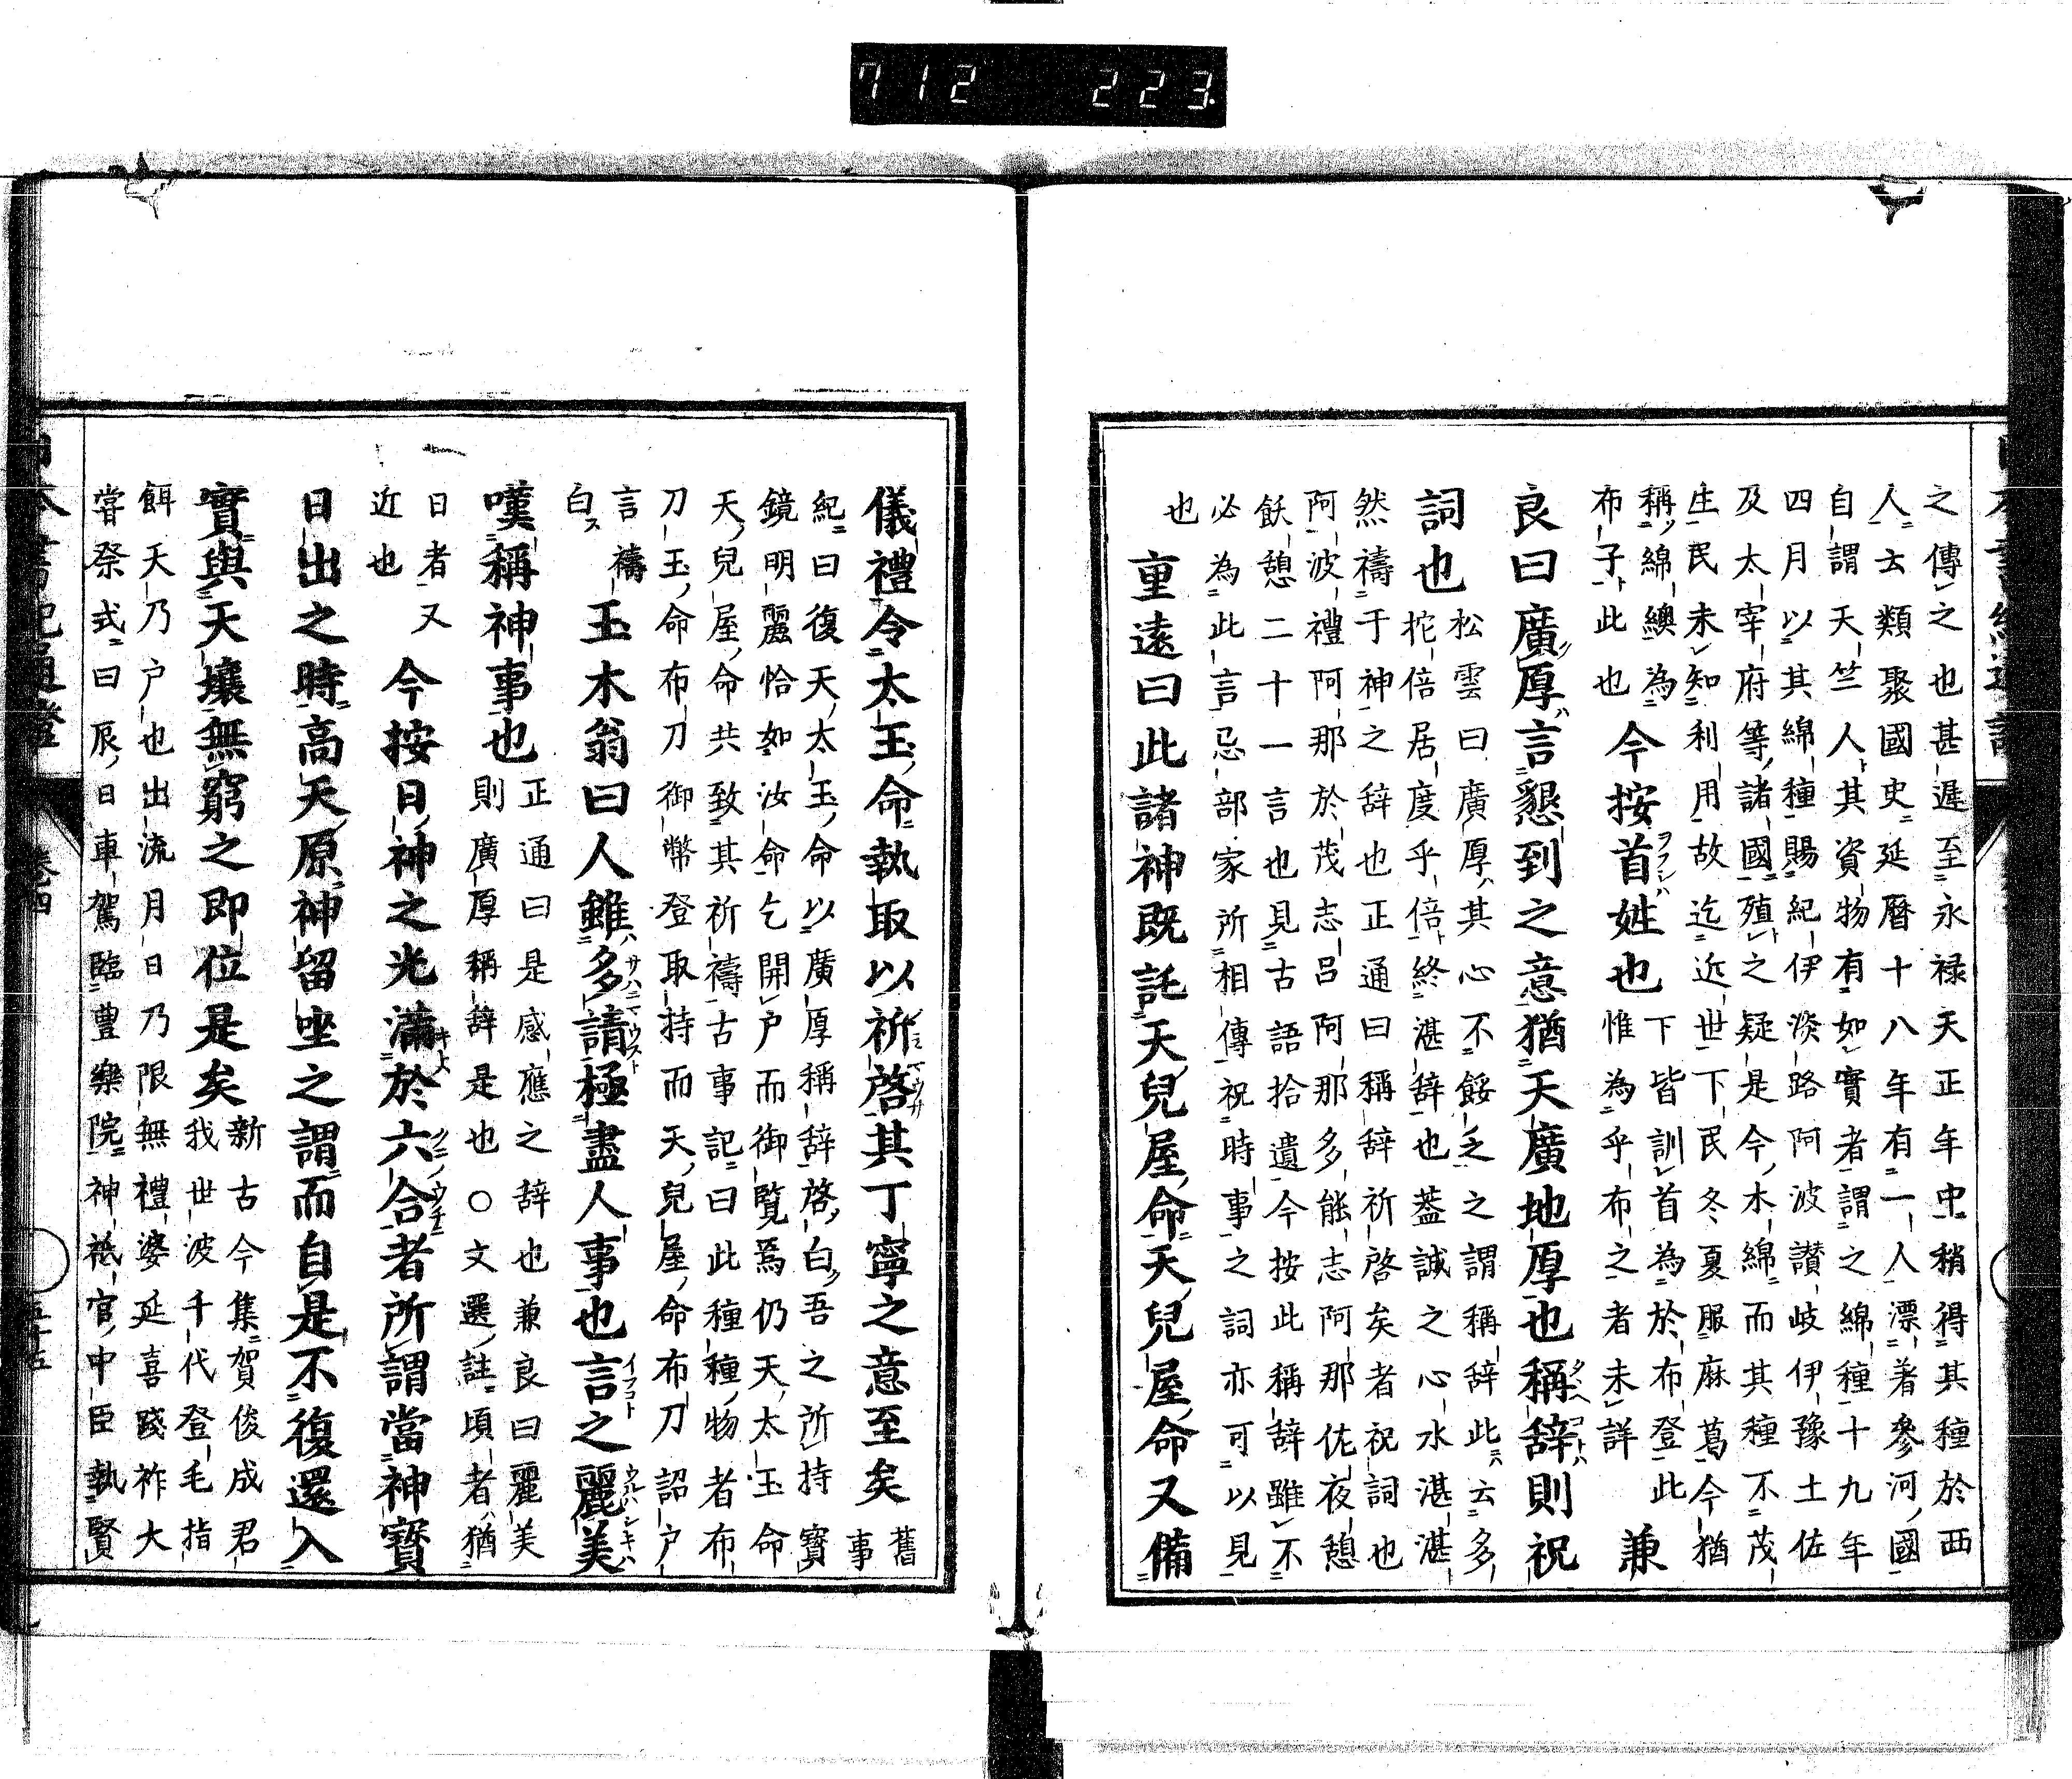 712 223
之傳之也甚遲至永禄天正年中稍得其種於西
人云類聚國史延曆十八年有一人漂著參河國
自謂天竺人其資物有如實者謂之綿種十九年
四月以其綿種賜紀伊淡路阿波讃岐伊豫土佐
及太宰府等諸國殖之疑是今木綿而其種不茂
生民未知利用故迄近世下民冬夏服麻葛今猶
稱綿纁為
布子此也
今按首姓也
下皆訓首為於布登此
惟為乎布之者未詳
兼
良曰廣厚言懇到之意猶天廣地厚也稱辞則祝
詞也
松雲曰廣厚其心不餒之之謂稱辞此云多
挓倍居度乎倍終湛辞也蓋誠之心水湛湛
然禱于神之辞也正通曰稱辞祈啓矣者祝詞也
阿波禮阿那於茂志呂阿那多能志阿那佐夜憩
飫憩二十一言也見古語拾遺今按此稱辞雖不
必為此言忌部家所相傳祝時事之詞亦可以見
也
重遠曰此諸神既託天兒屋命天兒屋命又備
儀禮令太玉命執取以祈啓其丁寧之意至矣
舊事
紀曰復天太玉命以廣厚稱辞啓白吾之所持寶
鏡明麗恰如汝命乞開戶而御覧焉仍天太玉命
天兒屋命共致其祈禱古事記曰此種種物者布
刀玉命布刀御幣登取持而天兒屋命布刀詔戶
言禱
白
玉木翁曰人雖多請極盡人事也言之麗美
嘆稱神事也
正通曰是感應之辞也兼良曰麗美
則廣厚稱辞是也○文選註頃者猶
日者又
近也
今按日神之光滿於六合者所謂當神寳
日出之時高天原神留坐之謂而自是不復還入
實與天壤無窮之即位是矣
新古今集賀俊成君
我世波千代登毛指
餌天乃戶也出流月日乃限無禮婆延喜踐祚大
甞祭式曰辰日車駕臨豊樂院神祇官中臣執賢
卷四